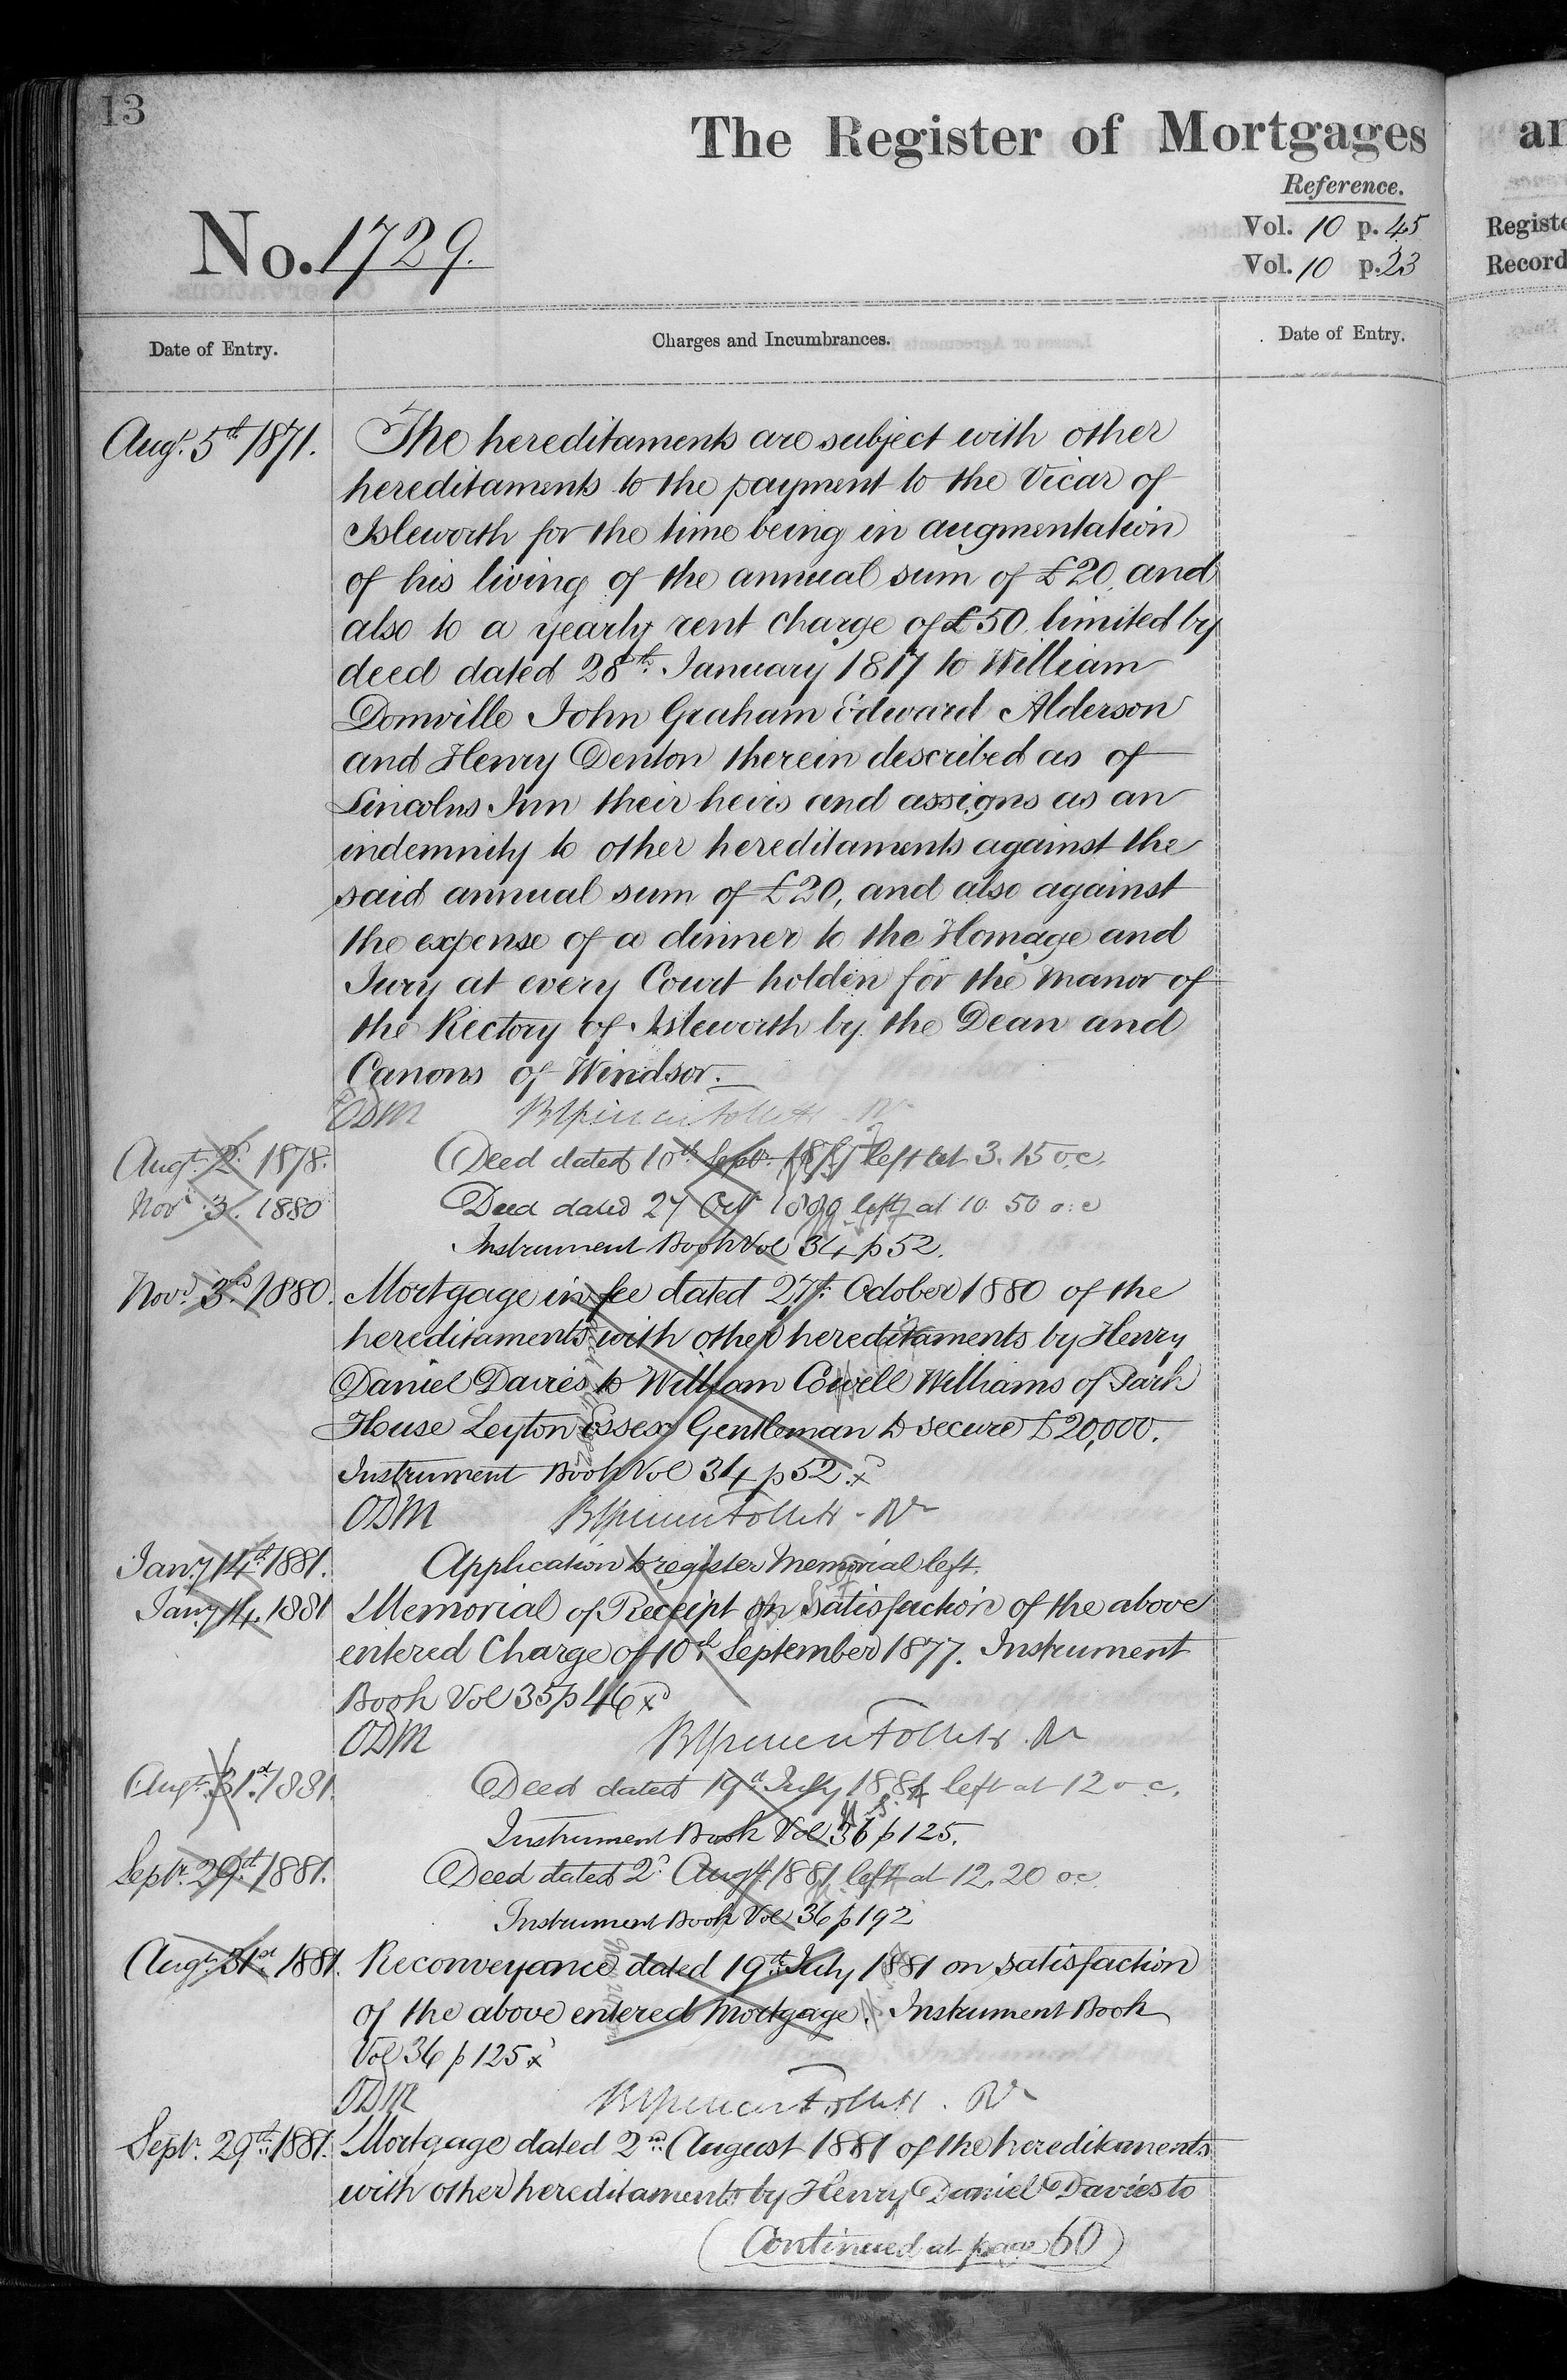 13
The Register of Mortgages
Reference.
No. 1729.
Vol. 10 p. 45
Vol. 10 p. 23
Date of Entry.
Charges and Incumbrances.
Date of Entry.
Augt. 5th 1871.
The hereditaments are subject with other
hereditaments to the payment to the Vicar of
Isleworth for the time being in augmentation
of his living of the annual sum of £20, and
also to a yearly rent charge of £50 limited by
deed dated 28th January 1817 to William
Domville John Graham Edward Alderson
and Henry Denton therein described as of
Lincolns Inn their heirs and assigns as an
indemnity to other hereditaments against the
said annual sum of £20, and also against
the expense of a dinner to the Homage and
Jury at every Court holden for the Manor of
the Rectory of Isleworth by the Dean and
Canons of Windsor.
ODM
Augt. 12. 1878. Deed dated 10th Septr. 1877 left at 3.15 o.c.
Novr. 3. 1880 Deed dated 27 Octr 1880 left at 10.50 o.c
Instrument Book Vol 34 p 52.
Novr. 3rd 1880. Mortgage in fee dated 27th October 1880 of the
hereditaments with other hereditaments by Henry
Daniel Davies to William Cowell Williams of Park
House Leyton Essex Gentleman to secure £20,000.
Instrument Book Vol 34 p 52 x
ODM
Jany. 14th 1881. Application to register Memorial left.
Jany. 14. 1881 Memorial of Receipt on satisfaction of the above
entered Charge of 10th September 1877. Instrument
Book Vol 35 p 46 x
ODM
Augt. 31st 1881. Deed dated 19th July 1881 left at 12 o.c.
Instrument Book Vol 36 p 125.
Septr. 29th 1881. Deed dated 2d Augt 1881 left at 12.20 o.c.
Instrument Book Vol 36 p 192
Augt. 31st 1881. Reconveyance dated 19th July 1881 on satisfaction
of the above entered Mortgage. Instrument Book
Vol 36 p 125 x
ODM
Septr. 29th 1881. Mortgage dated 2nd August 1881 of the hereditaments
with other hereditaments by Henry Daniel Davies to
(Continued at page 60)
an
Registe
Record